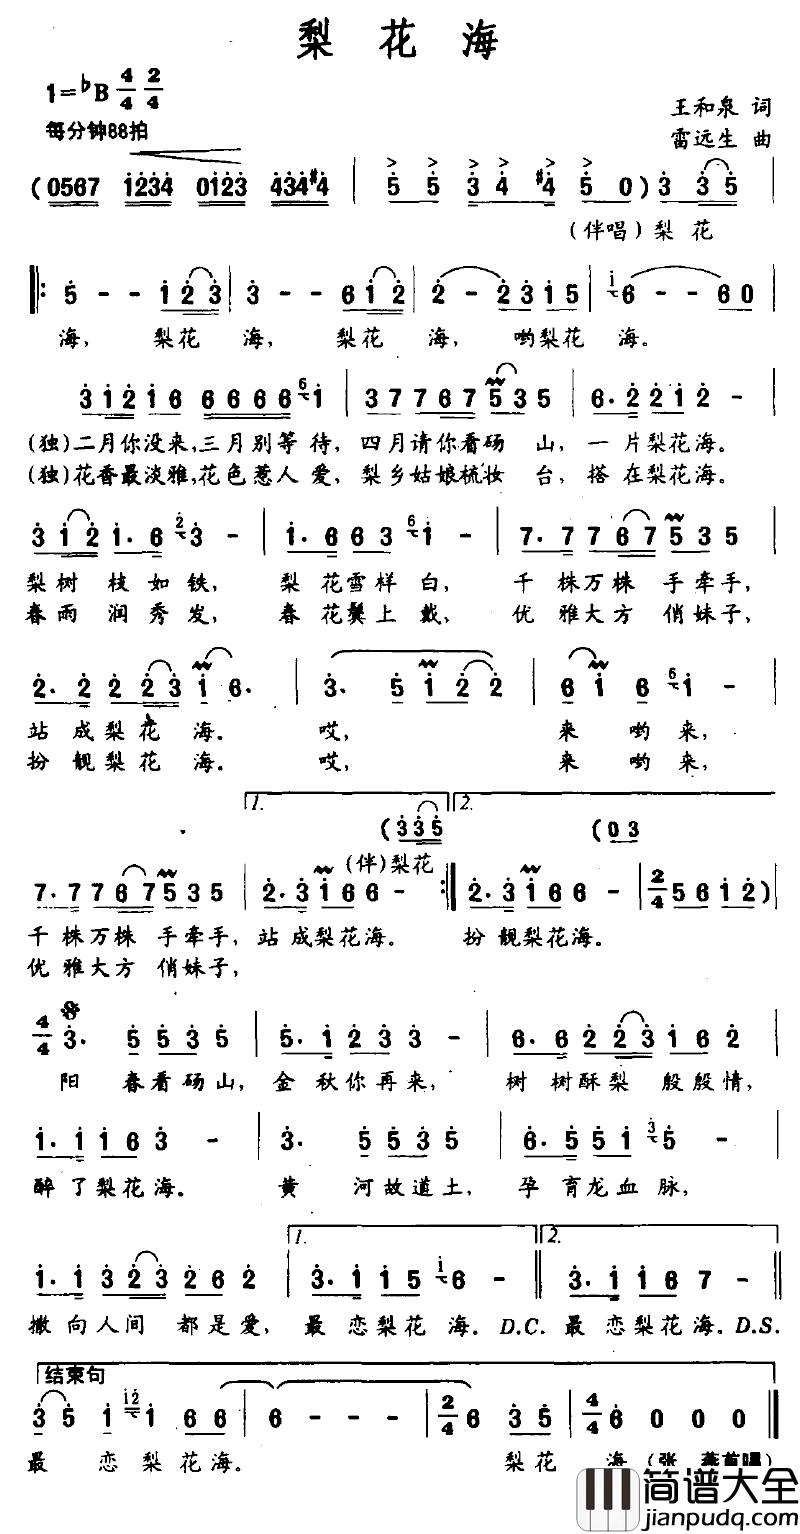 梨花海
1=♭B 4/4 2/4
王和泉 词
每分钟88拍
雷远生 曲
(0567 1234 0123 434#4 | 5 5 3 4 #4 5 0) 3 3 5
(伴唱) 梨 花
5 - - 1 2 3 | 3 - - 6 1 2 | 2 - 2 3 1 5 | 6 - - 6 0
海, 梨花 海, 梨花 海, 哟梨花 海。
3 1 2 1 6 6 6 6 6 1 | 3 7 7 6 7 5 3 5 | 6· 2 2 1 2 -
(独)二月你没来,三月别等待,四月请你看砀 山,一片梨花海。
(独)花香最淡雅,花色惹人爱,梨乡姑娘梳妆 台,搭在梨花海。
3 1 2 1· 6 3 - | 1· 6 6 3 1 - | 7· 7 7 6 7 5 3 5
梨树 枝如铁, 梨花雪样白, 千株万株 手牵手,
春雨 润秀发, 春花鬓上戴, 优雅大方 俏妹子,
2· 2 2 2 3 1 6· | 3· 5 1 2 2 | 6 1 6 1 -
站成梨花 海。 哎, 来 哟来,
扮靓梨花 海。 哎, 来 哟来,
1. 2.
(3 3 5 (0 3
(伴)梨花
7· 7 7 6 7 5 3 5 | 2· 3 1 6 6 - :| 2· 3 1 6 6 - | 2/4 5 6 1 2)
千株万株 手牵手,站成梨花海。 扮靓梨花海。
优雅大方 俏妹子,
4/4 3· 5 5 3 5 | 5· 1 2 3 3 - | 6· 6 2 2 3 1 6 2
阳 春看砀山,金秋你再来, 树树酥梨 殷殷情,
1· 1 1 6 3 - | 3· 5 5 3 5 | 6· 5 5 1 5 -
醉了梨花海。 黄 河故道土, 孕育龙血脉,
1. 2.
1· 1 3 2 3 2 6 2 | 3· 1 1 5 6 - || 3· 1 1 6 7 - ||
撒向人间 都是爱,最恋梨花海。D.C.最恋梨花海。D.S.
结束句
3 5 1 1 6 6 | 6 - - - | 2/4 6 3 5 | 4/4 6 0 0 0 ||
最 恋梨花海。 梨花 海(张
简谱大全
jianpudq.com